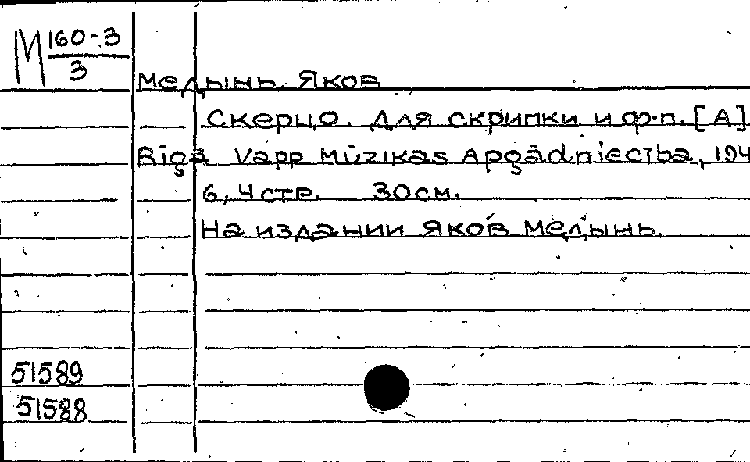 М 160-3
3
Медынь Яков
Скерцо. Для скрипки и ф-п. [А]
Rīgā Vapp Mūzikas Apgādniecība, 194
6, 4 стр. 30 см.
На издании Яков Медынь.
51589
51588